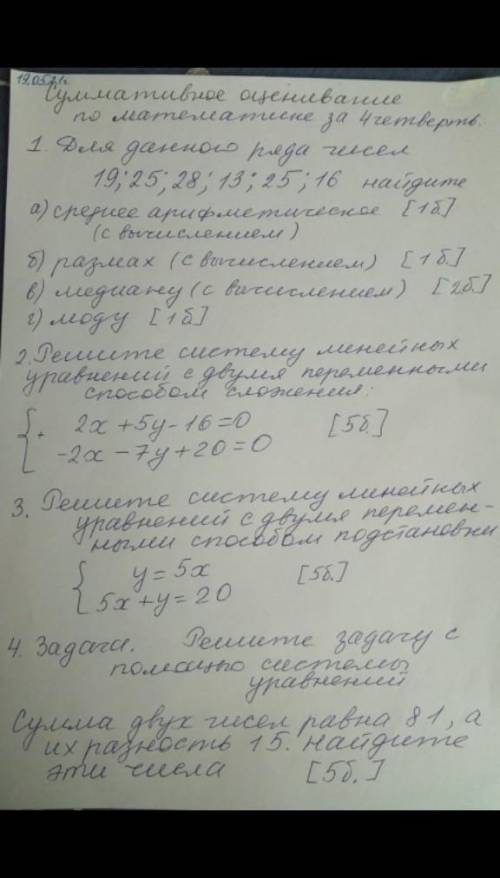 Суммативное оценивание
по математике за 4 четверть.
1. Для данного ряда чисел
19; 25; 28; 13; 25; 16 найдите
а) среднее арифметическое [1б]
(с вычислением)
б) размах (с вычислением) [1б]
в) медиану (с вычислением) [2б]
г) моду [1б]
2. Решите систему линейных
уравнений с двумя переменными
способом сложения:
2x + 5y - 16 = 0 [5б.]
-2x - 7y + 20 = 0
3. Решите систему линейных
уравнений с двумя перемен-
ными способом подстановки
y = 5x [5б]
5x + y = 20
4. Задача. Решите задачу с
помощью системы
уравнений
Сумма двух чисел равна 81, а
их разность 15. Найдите
эти числа [5б.]